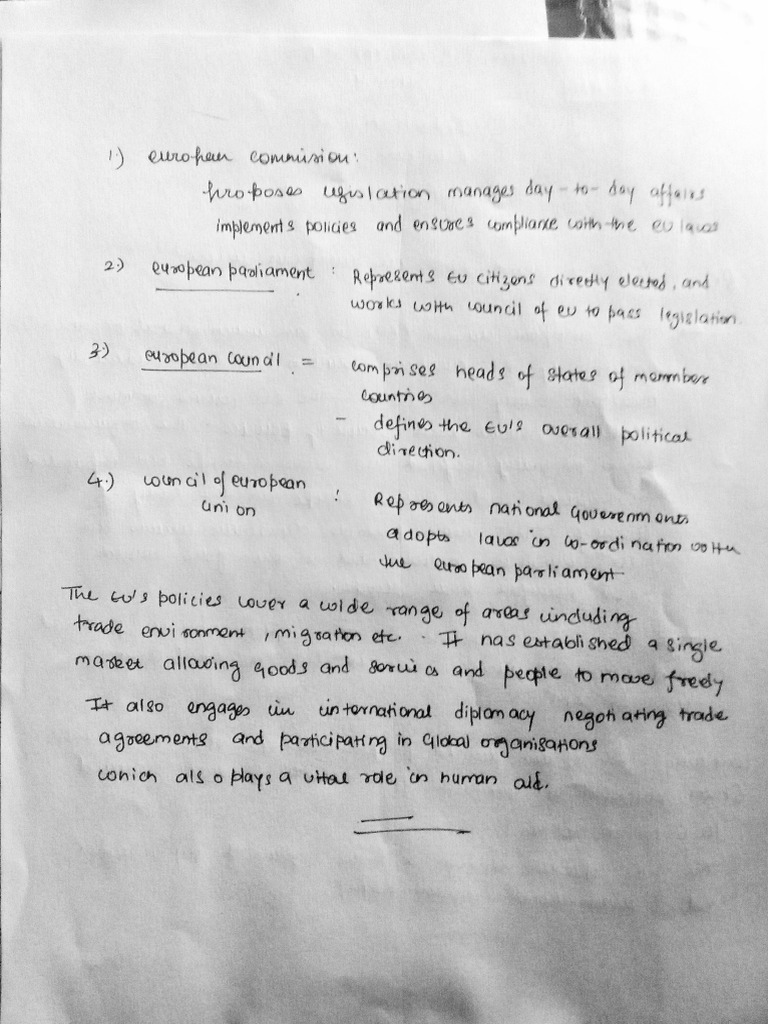 1.) european commission:
proposes legislation manages day-to-day affairs
implements policies and ensures compliance with the eu laws
2.) european parliament : Represents EU citizens directly elected, and
works with council of eu to pass legislation.
3.) european council = comprises heads of states of memmber
countries
- defines the EU's overall political
direction.
4.) council of european
union : Represents national Goverenments
adopts laws in co-ordination with
the european parliament
The EU's policies cover a wide range of areas including
trade environment, migration etc. It has established a single
market allowing goods and services and people to move freely
It also engages in international diplomacy negotiating trade
agreements and participating in Global organisations
which also plays a vital role in human aid.